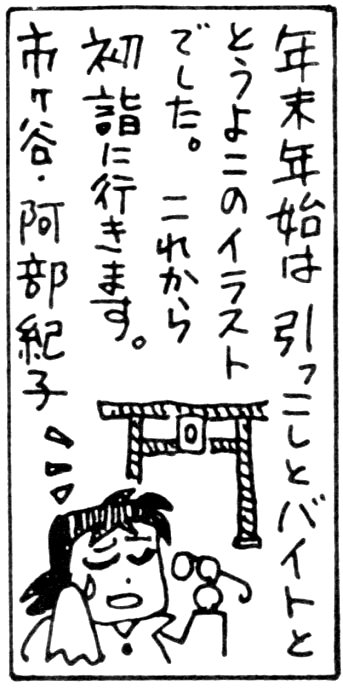 年末年始は引っこしとバイトと
とうよこのイラスト
でした。これから
初詣に行きます。
市ヶ谷・阿部紀子